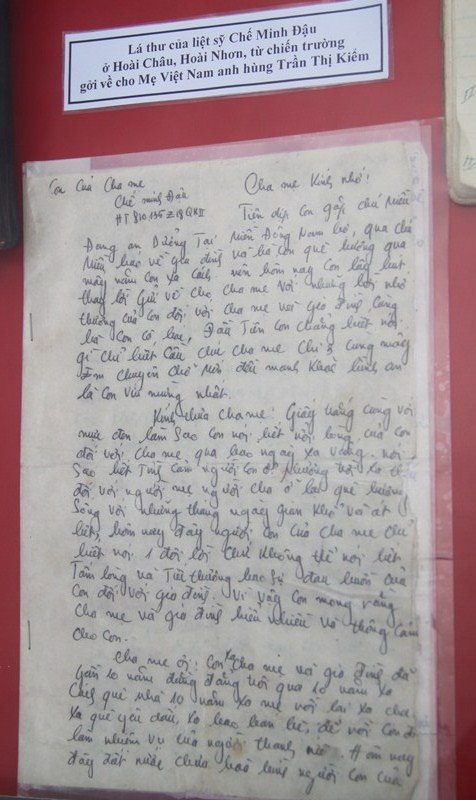 Lá thư của liệt sỹ Chế Minh Đậu
ở Hoài Châu, Hoài Nhơn, từ chiến trường
gởi về cho Mẹ Việt Nam anh hùng Trần Thị Kiếm
Con Của Cha mẹ
Cha mẹ Kính nhớ!
Chế minh Đậu
Tiện dịp Con gặp chú Miên
Đang an Dưỡng Tại Miền Đông Nam bộ, qua chú
Miên báo về gia đình và bà con quê hương qua
mấy năm Con xa cách, nên hôm nay Con lấy bút
thay lời Gửi về cho cha mẹ Với những lời nhớ
thương của Con đối với cha mẹ và Gia đình cùng
bà Con cô bác, Đầu Tiên Con chẳng biết nói
gì chỉ biết Cầu chúc cha mẹ Chị cùng
Em chuyên chở đầu mạnh khoẻ bình an
là Con vui mừng nhất.
Kính thưa cha mẹ! Giấy trắng cùng với
mực đen làm Sao Con nói hết nỗi lòng của Con
đối với cha mẹ qua bao ngày xa vắng. nói
Sao hết Tình Cảm người Con ở phương trời xa
đối với người mẹ người cha ở lại quê hương
Sống với những tháng ngày gian Khổ và ác
liệt, hôm nay đây người con của cha mẹ chỉ
biết nói 1 đôi lời chứ không thể nói hết
Tấm lòng và Tình thương bao sự đau buồn của
Con đối với gia đình. Vì vậy Con mong rằng
Cha mẹ và gia đình hiểu nhiều và thông Cảm
cho con.
Cha mẹ ơi! Con xa Cha mẹ và gia đình đã
gần 10 năm đằng đẳng trôi qua 10 năm xa
quê nhà 10 năm xa mẹ với lại xa cha
xa quê yêu dấu, xa bao bạn bè, để với Con đi
làm nhiệm vụ của người thanh niên. Hôm nay
đây đất nước chưa hoà bình người con của